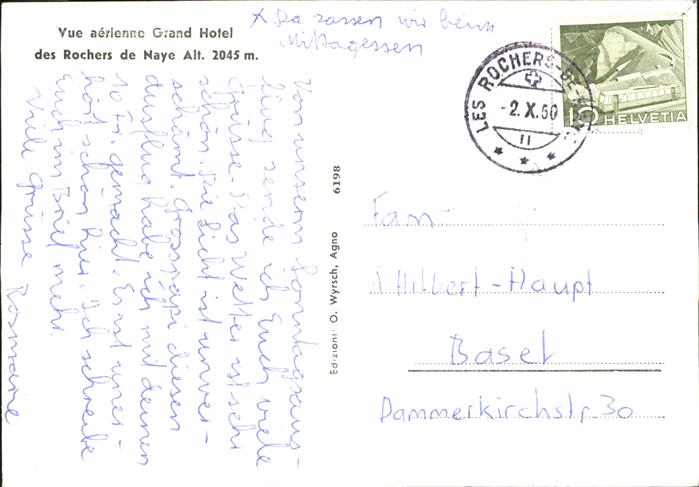 Vue aérienne Grand Hotel
des Rochers de Naye Alt. 2045 m.
x Da sassen wir beim
Mittagessen
Von unserm Sonntagsaus-
flug sende ich Euch viele
Grüsse. Das Wetter ist sehr
schön. Die Sicht ist unver-
schämt. Grosspapi diesen
Ausflug habe ich mit deinen
10 Fr. gemacht. Es ist uner-
hört schön hier. Ich schreibe
Euch im Brief mehr.
Viele Grüsse Rosmarie
Edizioni: O. Wyrsch, Agno 6198
LES ROCHERS-DE-NAYE
-2.X.50
11
10 HELVETIA
Fam.
Hilbert-Haupt
Basel
Dammerkirchstr. 30